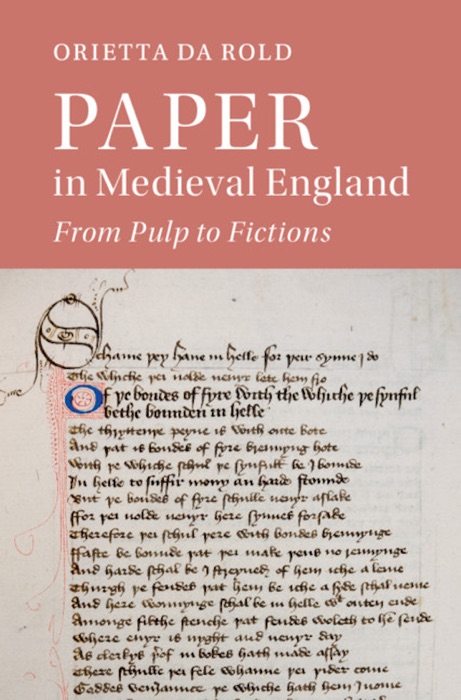 ORIETTA DA ROLD
PAPER
in Medieval England
From Pulp to Fictions
Schame þey haue in helle for þeir synne I do
The whiche þei nolde neuyr lete hem fro
Of þe bondes of fyre with the whiche þe synful
bethe bounden in helle
The thryttenþe peyne is with oute bote
And þat is bondes of fyre brennyng hote
With þe whiche schul þe synfull be I bounde
In helle to suffir mony an harde stounde
But þe bondes of fyre schulle neuyr aslake
ffor þei nolde neuyr here synnes forsake
Therefore þei schul þere with bondes brennynge
ffaste be bounde þat þei make þens no
And harde schal be I streyned of hem iche a leme
Thurgh þe fendes þat hem be iche a syde schal
And here wonnynge schal be in helle wt outen ende
Amonge filthe stenche þat fendes woleth to he sende
Where euyr is nyght and neuyr day
As clerkys in bokes hath made assay
There schulle þei fele whanne þei þider come
Goddes veniaunce þe whiche hath hem nome